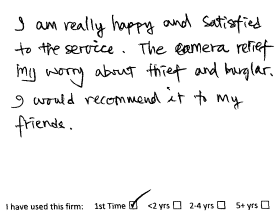 I am really happy and satisfied
to the service. The camera relief
my worry about thief and burglar.
I would recommend it to my
friends.
I have used this firm: 1st Time ☑ <2 yrs ☐ 2-4 yrs ☐ 5+ yrs ☐